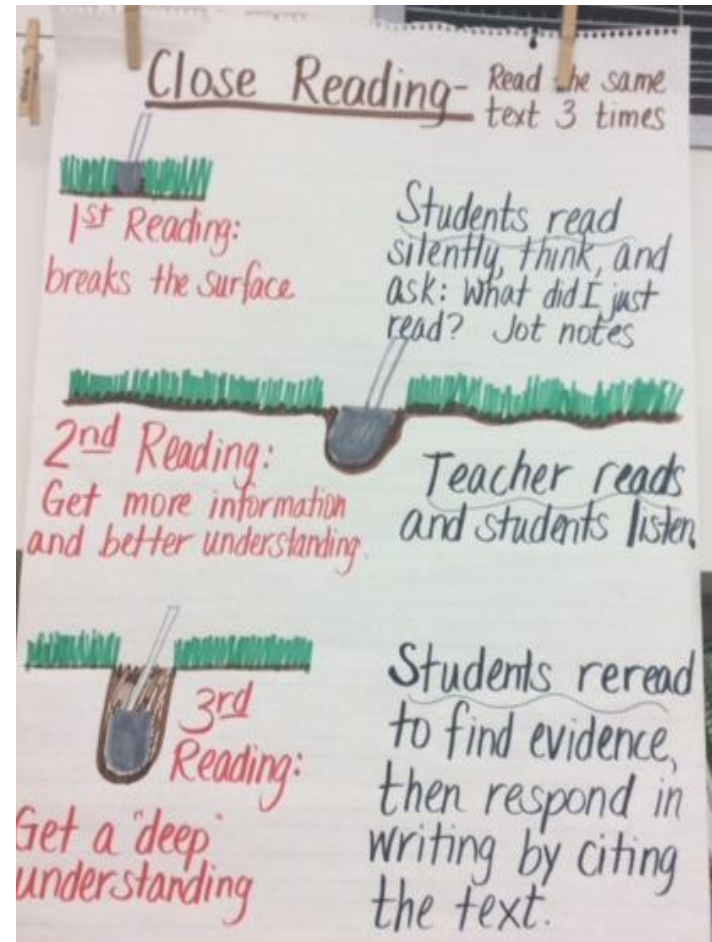 Close Reading- Read the same
text 3 times
1st Reading:
breaks the surface
Students read
silently, think, and
ask: What did I just
read? Jot notes
2nd Reading:
Get more information
and better understanding.
Teacher reads
and students listen.
3rd
Reading:
Get a "deep"
understanding
Students reread
to find evidence,
then respond in
writing by citing
the text.